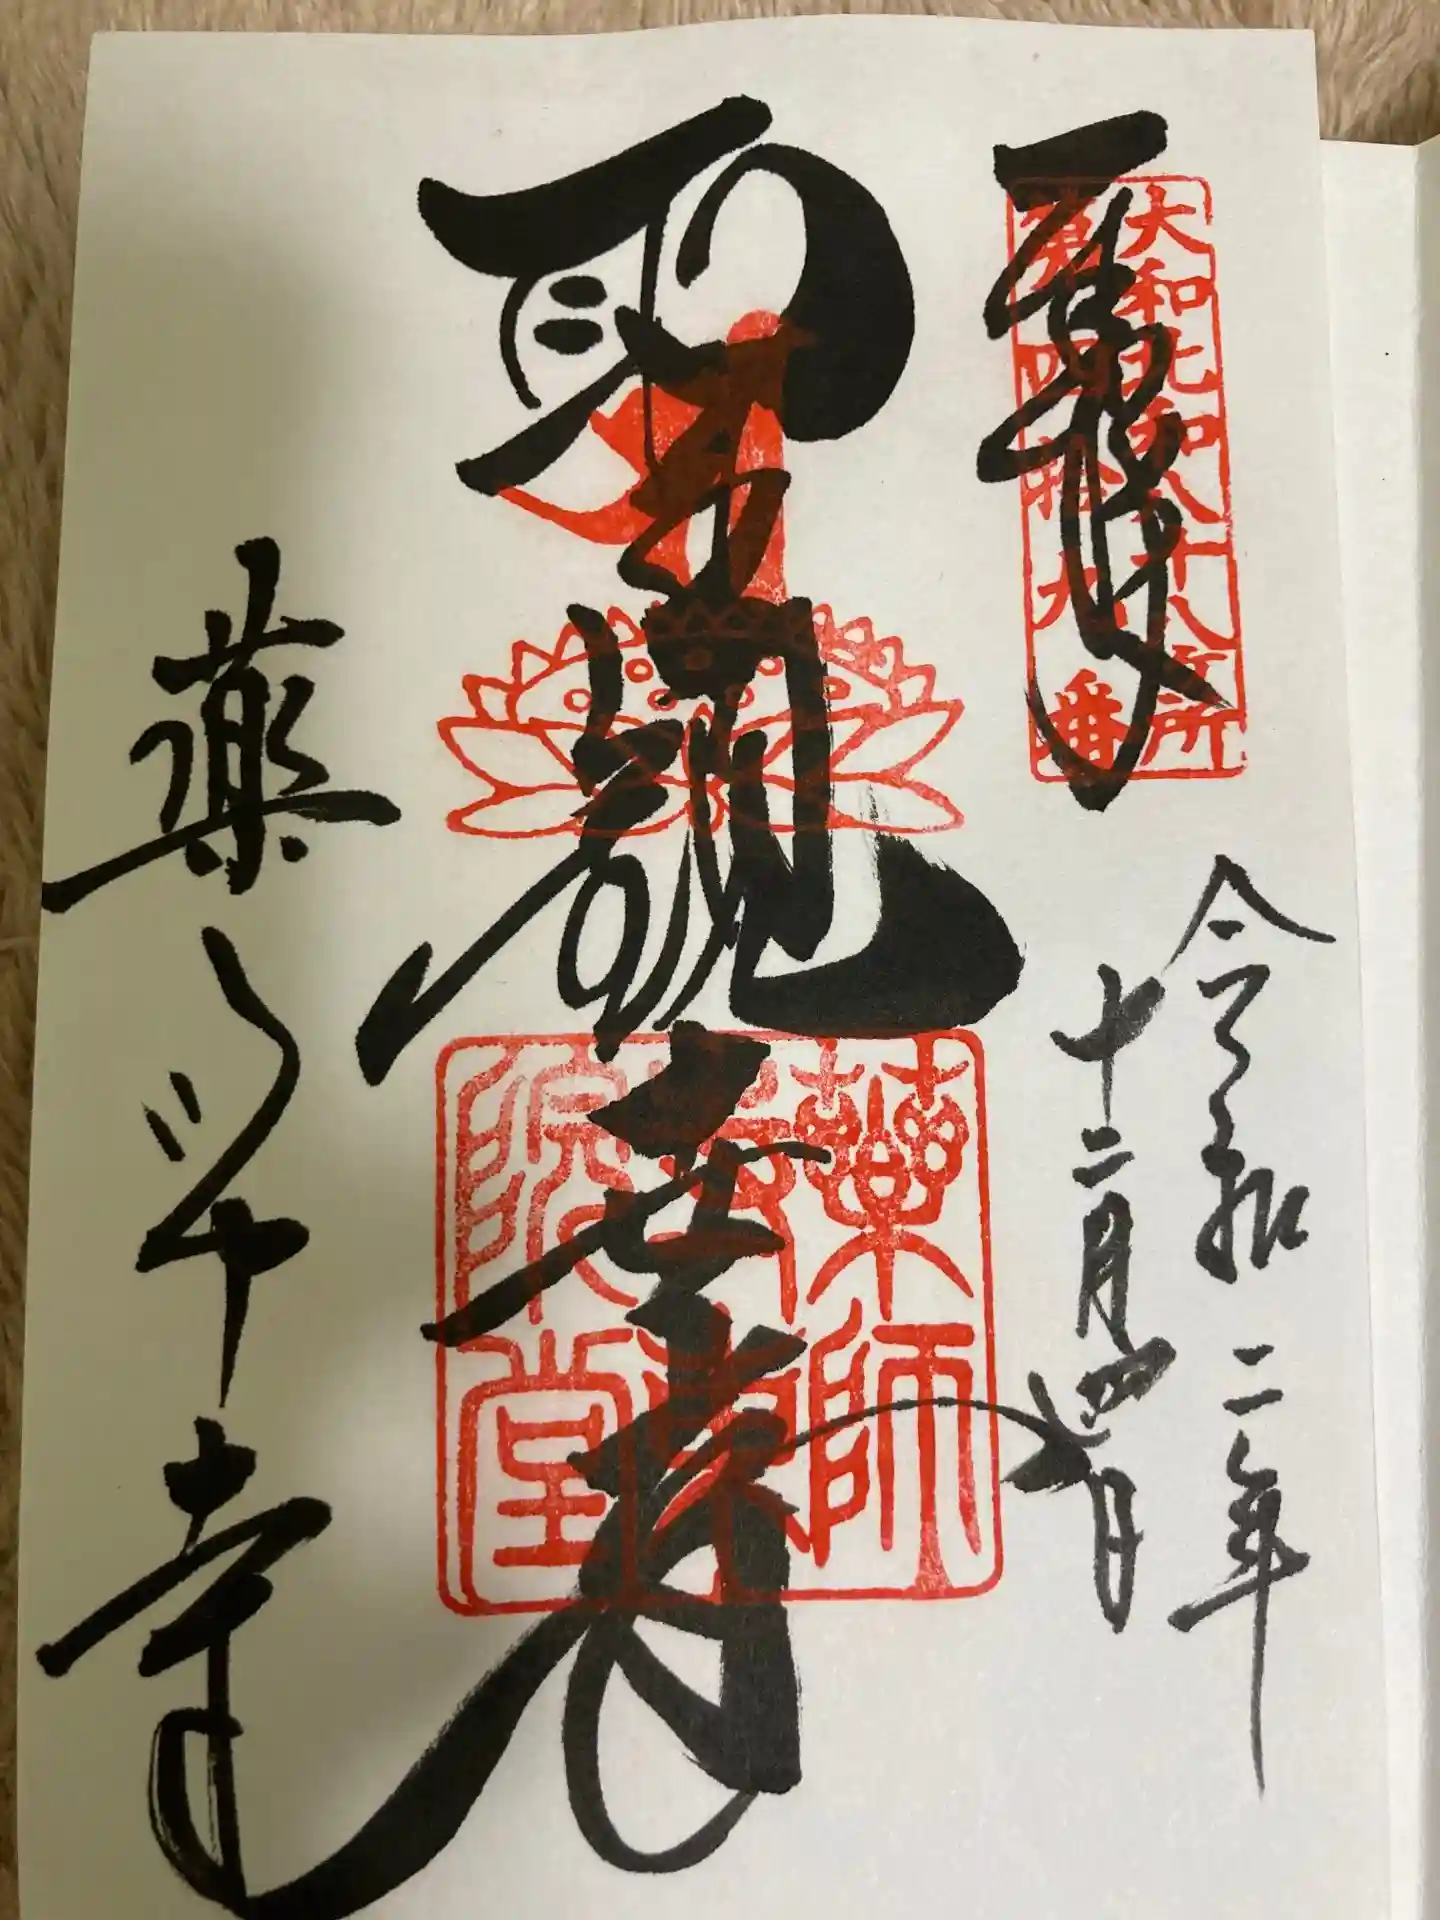 奉拝
大和北部八十八ヶ所
第四拾九番
令和二年
十二月四日
聖観世音
薬師
寺東
院堂
薬師寺